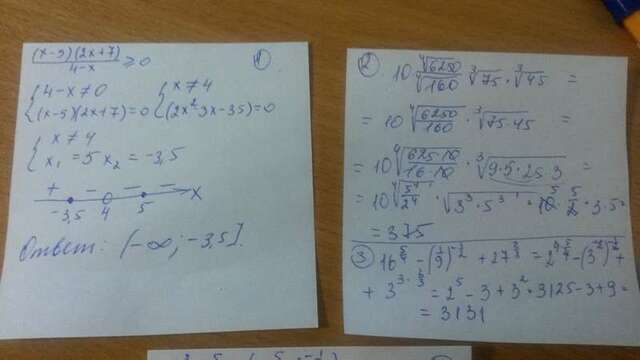 (x-5)(2x+7)/(4-x) ≥ 0
1
{ 4-x ≠ 0
{ (x-5)(2x+7) = 0
{ x ≠ 4
{ (2x² 3x-35) = 0
{ x ≠ 4
{ x₁ = 5 x₂ = -3,5
+ - - -
-3,5 4 5 x
Ответ: (-∞; -3,5].
2
10 · ⁴√6250/⁴√160 · ³√75 · ³√45 =
= 10 ⁴√(6250/160) · ³√(75·45) =
= 10 ⁴√(625·10/16·10) · ³√(9·5·25·3) =
= 10 ⁴√(5⁴/2⁴) · ³√(3³·5³) = 10 · 5/2 · 3·5 =
= 375
3
16^(5/4) - (1/9)^(-1/2) + 27^(2/3) = 2^(4·5/4) - (3^(-2))^(-1/2) +
+ 3^(3·2/3) = 2⁵ - 3 + 3² = 3125-3+9 =
= 3131